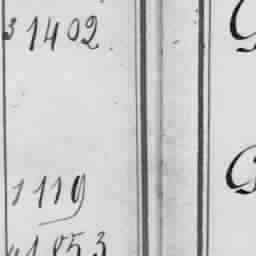 31402
1119
1853